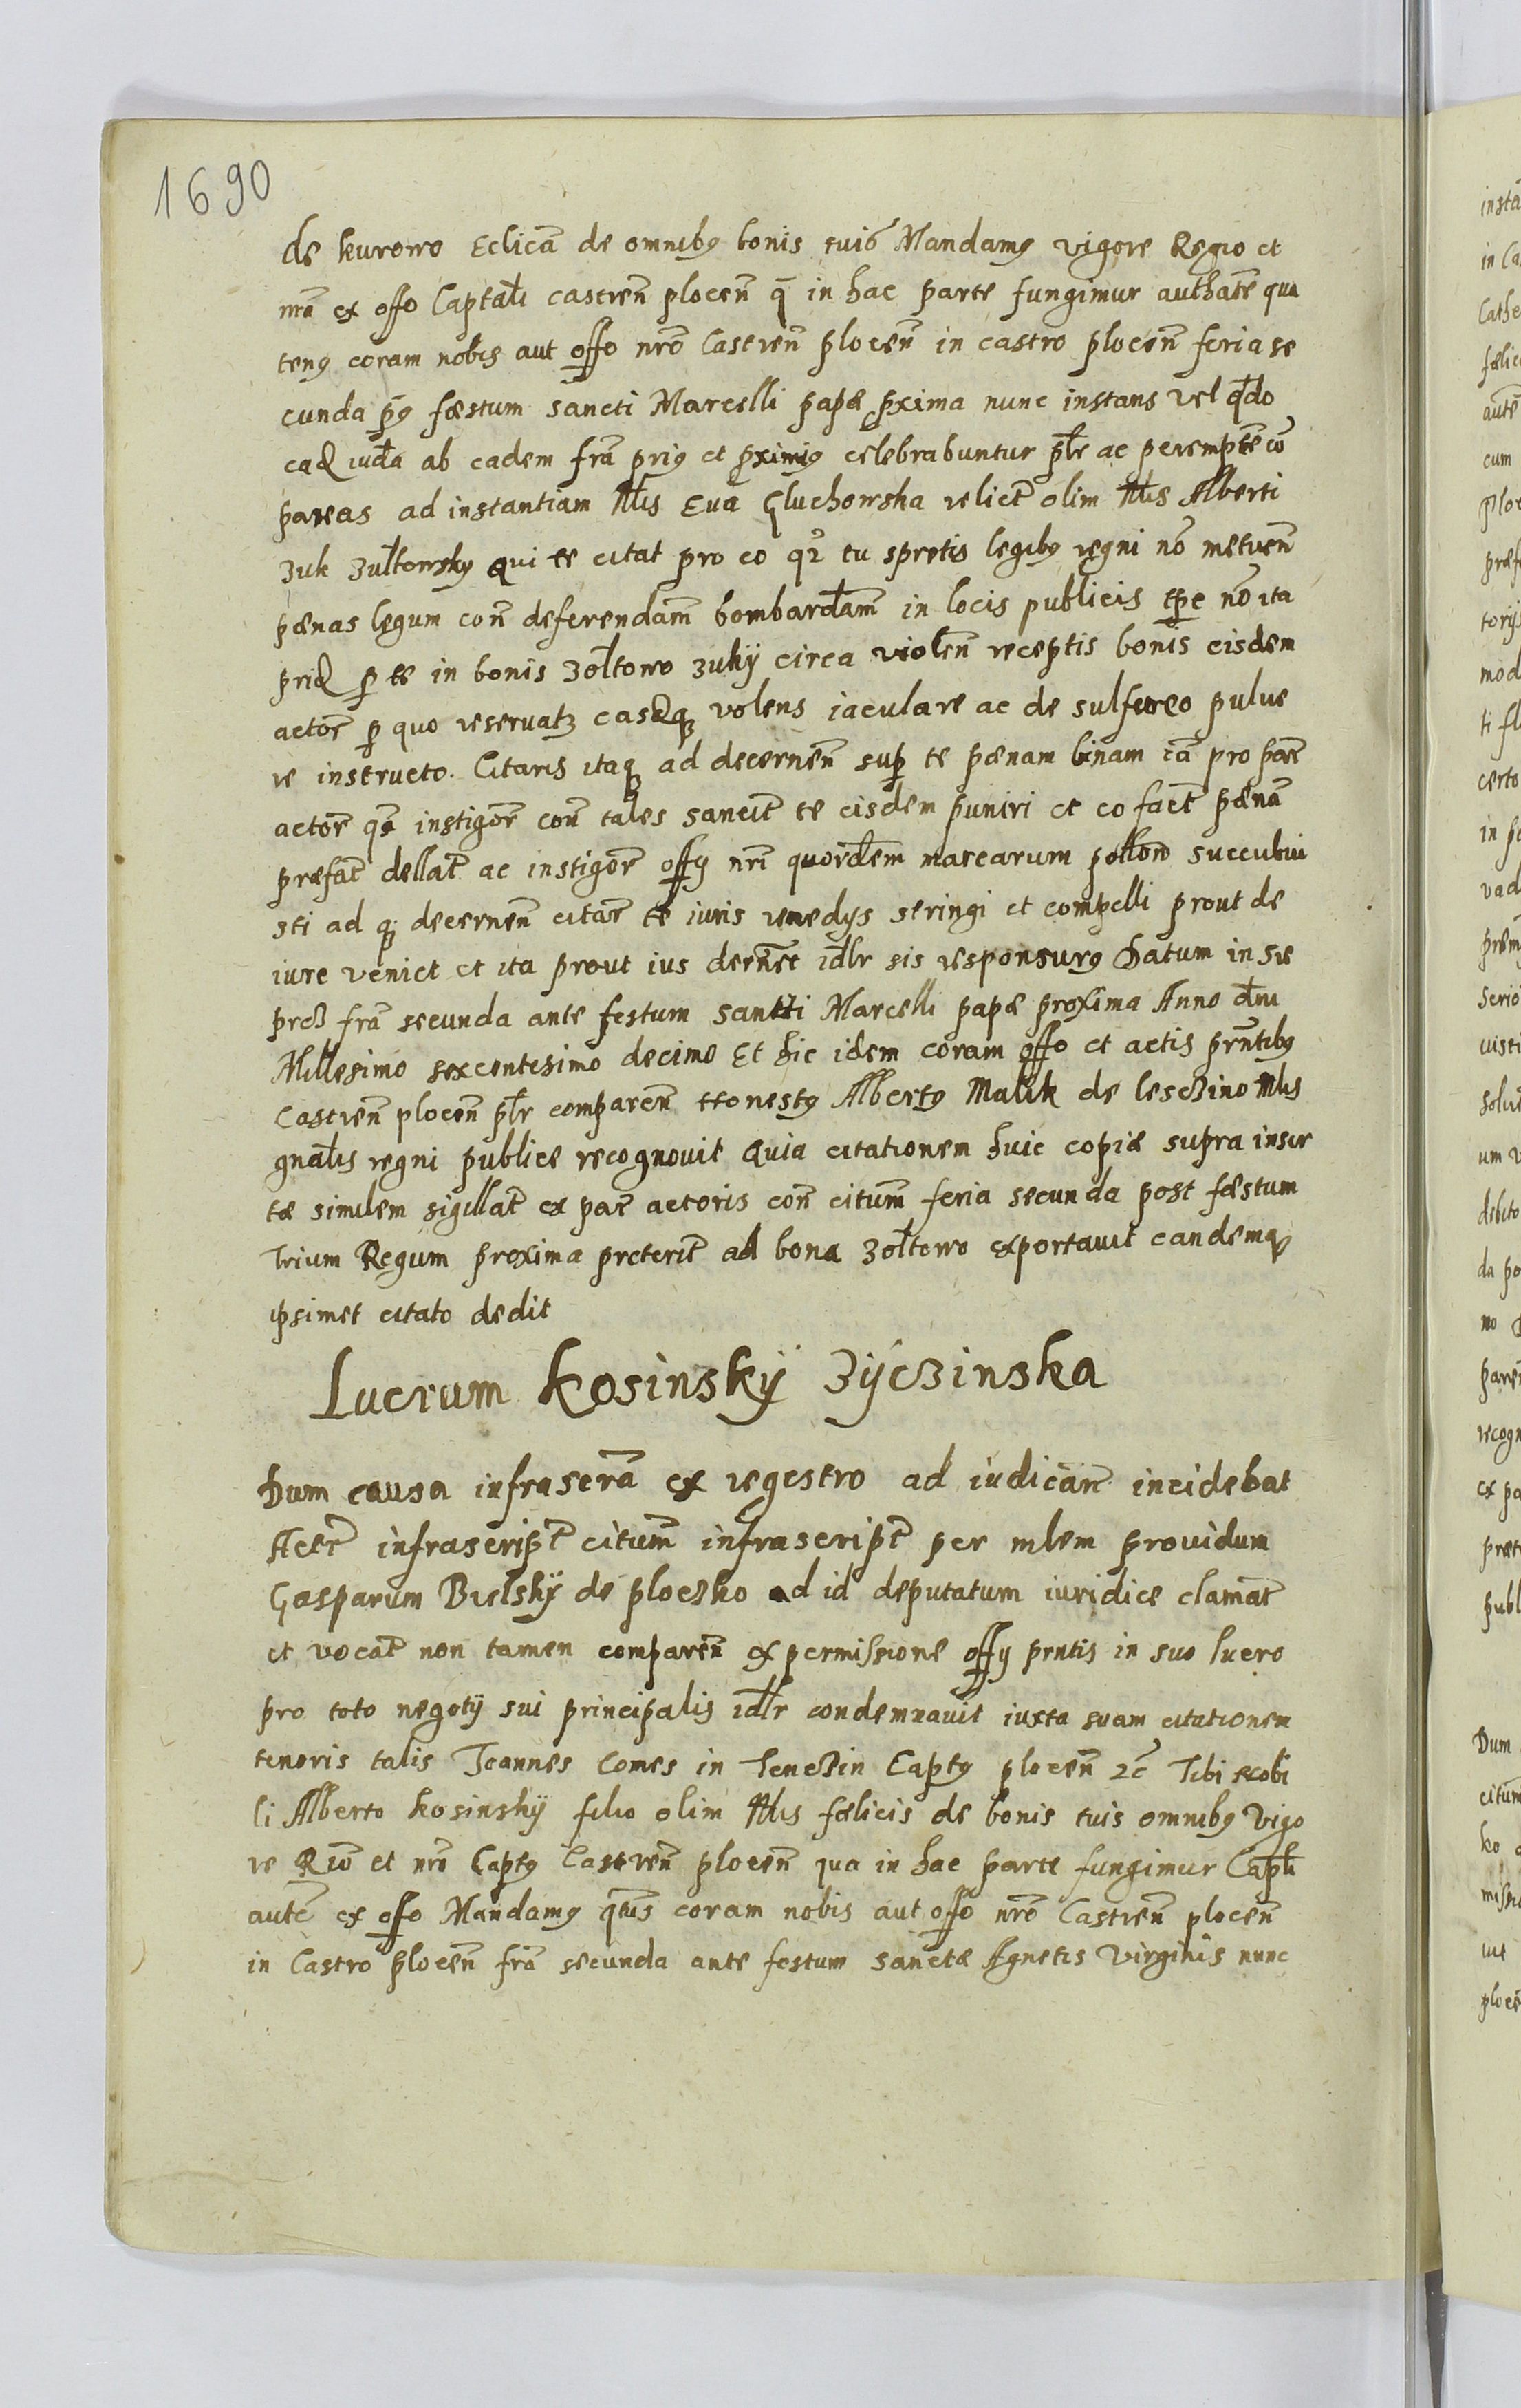 1690
de kurowo Eclicã de omnibꝯ bonis tuis Mandamꝯ vigore Regio et
nrõ ex offo Captali castreñ ploceñ q̃ in hac parte fungimur authate qua
tenꝯ coram nobis aut offo nrõ Castreñ ploceñ in castro ploceñ feria se
cunda p̃ꝯ fæstum sancti Marcelli papæ ꝓxima nunc instans vel qdo
ab eadem frã priꝯ et ꝓximiꝯ celebrabuntur plr ac perempte
pareas ad instantiam Nlis Eua Gluchowska relict olim Nlis Alberti
Zuk Zultowsky qui te citat pro eo qꝛ tu spretis legibꝯ regni nõ metueñ
pænas legum coñ deferendam bombardam in locis publicis tpe nõ ita
prid ꝑ te in bonis Zoltowo Zukÿ circa violeñ receptis bonis eisdem
actor ꝑ quo reseruatꝫ volens iaculare ac de sulfureo pulue
re instructo. Citaris itaqꝫ ad decerneñ sup te pænam binam tã pro parte
actor qᷓ instigor coñ tales sancit te eisdem puniri et eo fact pænã
præfat dellat ac instigor offy nri quordem marcarum succubui
sti ad qꝫ decerneñ citar te iuris remedys stringi et compelli prout de
iure veniet et ita prout ius dernet idlr sis responsurꝯ Datum in Sie
prcz frã secunda ante festum santti Marcelli papæ proxima Anno dni
Millesimo sexcentesimo decimo Et hic idem coram offo et actis prntibꝯ
Castreñ ploceñ plr compareñ Honestꝯ Albertꝯ Malik de lesczino Mlis
gnalis regni publice recognouit Quia citationem huic copiæ supra inser
tæ similem sigillat ex par actoris coñ citum feria secunda post fæstum
Trium Regum proxima preterit ad bona Zoltowo exportauit eandemqꝫ
ipsimet citato dedit
Lucrum Kosinskÿ Zÿczinska
Dum causa infrascrã ex regestro ad iudican incidebat
Actr infrascript citum infrascript per mlem prouidum
Gasparum Bielskÿ de ploczko ad id deputatum iuridice clamat
et vocat non tamen compareñ ex permissione offy prntis in suo lucro
pro toto negotÿ sui principalis idlr condemnauit iuxta suam citationem
tenoris talis Joannes Comes in Tenczin Captꝯ ploceñ ꝛc Tibi Nobi
li Alberto kosinskÿ filio olim Nlis fælicis de bonis tuis omnibꝯ vigo
re Rio et nrõ Captꝯ Castreñ ploceñ qua in hac parte fungimur Capli
aute ex offo Mandamꝯ qtus coram nobis aut offo nrõ Castreñ ploceñ
in Castro ploceñ frã secunda ante festum sanctæ Agnetis Virginis nunc